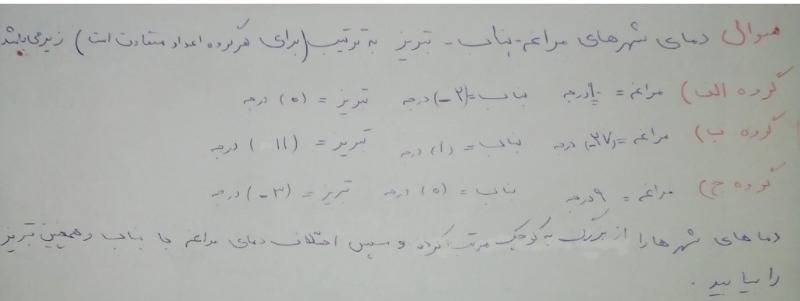 سوال) دمای شهرهای مراغه - بناب - تبریز به ترتیب (برای هر گروه اعداد متفاوت است) زیر می باشد
گروه الف) مراغه = درجه بناب = (۲-) درجه تبریز = (۵) درجه
گروه ب) مراغه = (۲۷-) درجه بناب = (۱) درجه تبریز = (۱۱-) درجه
گروه ج) مراغه = ۹ درجه بناب = (۵) درجه تبریز = (۳-) درجه
دماهای شهرها را از بزرگ به کوچک مرتب کرده و سپس اختلاف دمای مراغه با بناب و همچنین تبریز
را بیابید .